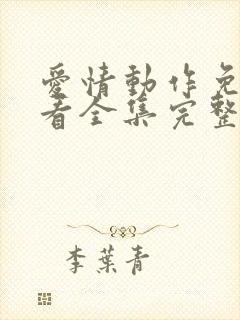 愛情動作免
看全集完整
李葉青